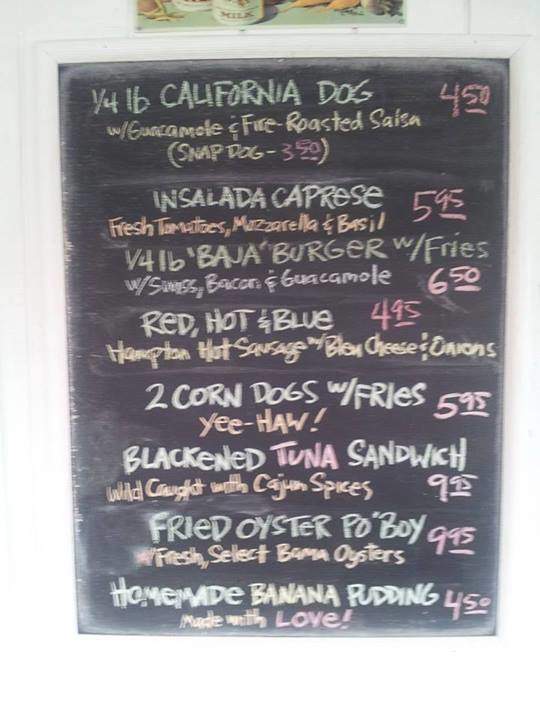 MILK
1/4 lb CALIFORNIA DOG 4.50
w/Guacamole & Fire-Roasted Salsa
(SNAP DOG - 3.50)
INSALADA CAPRESE 5.95
Fresh Tomatoes, Mozzarella & Basil
1/4 lb 'BAJA' BURGER w/Fries
w/Swiss, Bacon & Guacamole 6.50
RED, HOT & BLUE 4.95
Hampton Hot Sausage w/Bleu Cheese & Onions
2 CORN DOGS w/FRIES 5.95
Yee-HAW!
BLACKENED TUNA SANDWICH
Wild Caught with Cajun Spices 9.95
FRIED OYSTER PO'BOY 9.95
w/Fresh, Select Bama Oysters
HOMEMADE BANANA PUDDING 4.50
Made with LOVE!